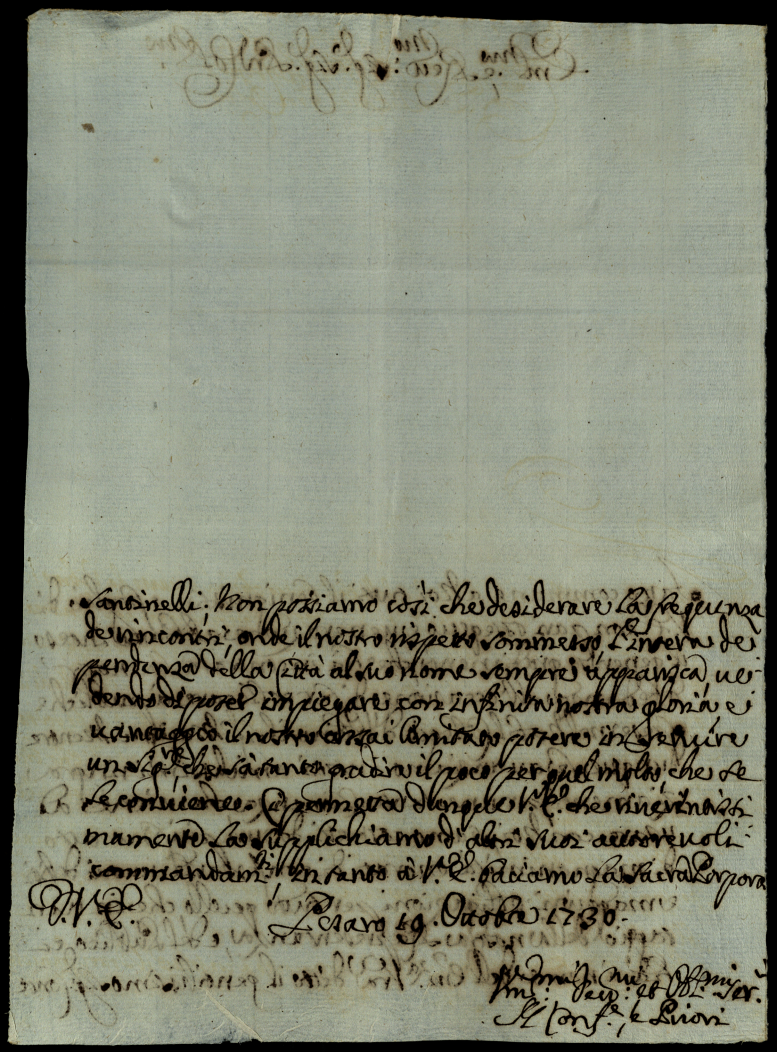 Santinelli; Non possiamo così che desiderare la frequenza
de rincontri, onde il nostro rispetto sommesso, e l'intera de
pendenza della Città al suo nome sempre apparisca, ve
dendo di poter impiegare con infinita nostra gloria e
vantaggio il nostro assai limitato potere in servire
un Sig.re che sà tanto gradire il poco per quel molto, che se
le conviene. Ci permetta dunque V.E. che riverentissi
mamente La supplichiamo d'altri suoi autorevoli
commandam.ti, in tanto à V.E. baciamo La Sacra Porpora
D.V.E. Pesaro 19. Ottobre 1730.
et Ser.ri
Il Conf.re, e Priori